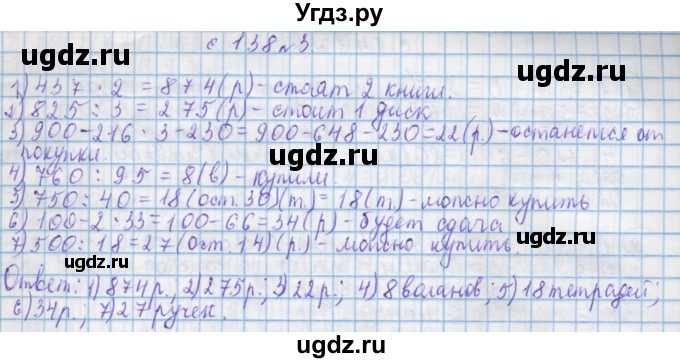 Угдз.ру
с 138 №3
1) 437 · 2 = 874 (р) - стоят 2 книги.
2) 825 : 3 = 275 (р) - стоит 1 диск
3) 900 - 216 · 3 - 230 = 900 - 648 - 230 = 22 (р.) - останется от
покупки.
4) 760 : 95 = 8 (в) - купили.
5) 750 : 40 = 18 (ост. 30) (т.) = 18 (т.) - можно купить
6) 100 - 2 · 33 = 100 - 66 = 34 (р) - будет сдача
7) 500 : 18 = 27 (ост. 14) (р) - можно купить
Ответ: 1) 874 р.; 2) 275 р.; 3) 22 р.; 4) 8 воланов; 5) 18 тетрадей;
6) 34 р.; 7) 27 ручек.
ugdz.ru ugdz.ru ugdz.ru
ugdz.ru ugdz.ru ugdz.ru
ugdz.ru ugdz.ru ugdz.ru
ugdz.ru ugdz.ru ugdz.ru
Угдз.ру